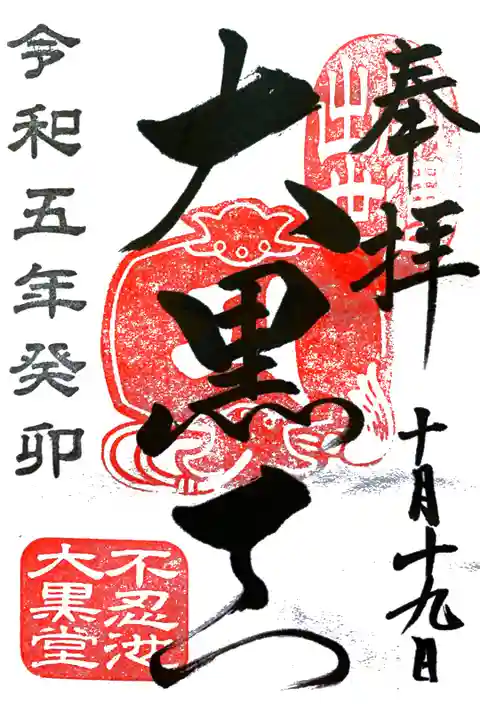 奉拝
大黒天
十月十九日
令和五年癸卯
不忍池
大黒堂